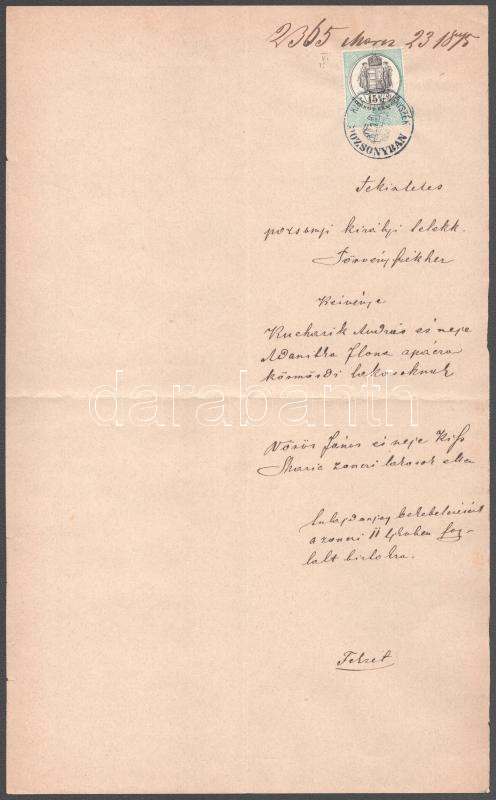 2365 Marz 23 1875
15 Kr
POZSONYBAN
Tekintetes
pozsonyi királyi telekk.
Törvényszékhez
Kérvénye
Kucharik András és neje
Adamitza Ilona apácza
körmösdi lakosoknak
Vörös János és neje Kiss
Maria zoneri lakosok ellen
tulajdonjog bekebelezéseért
a zoneri 11 tjkvben fog-
lalt birtokra.
Felzet
darabanth